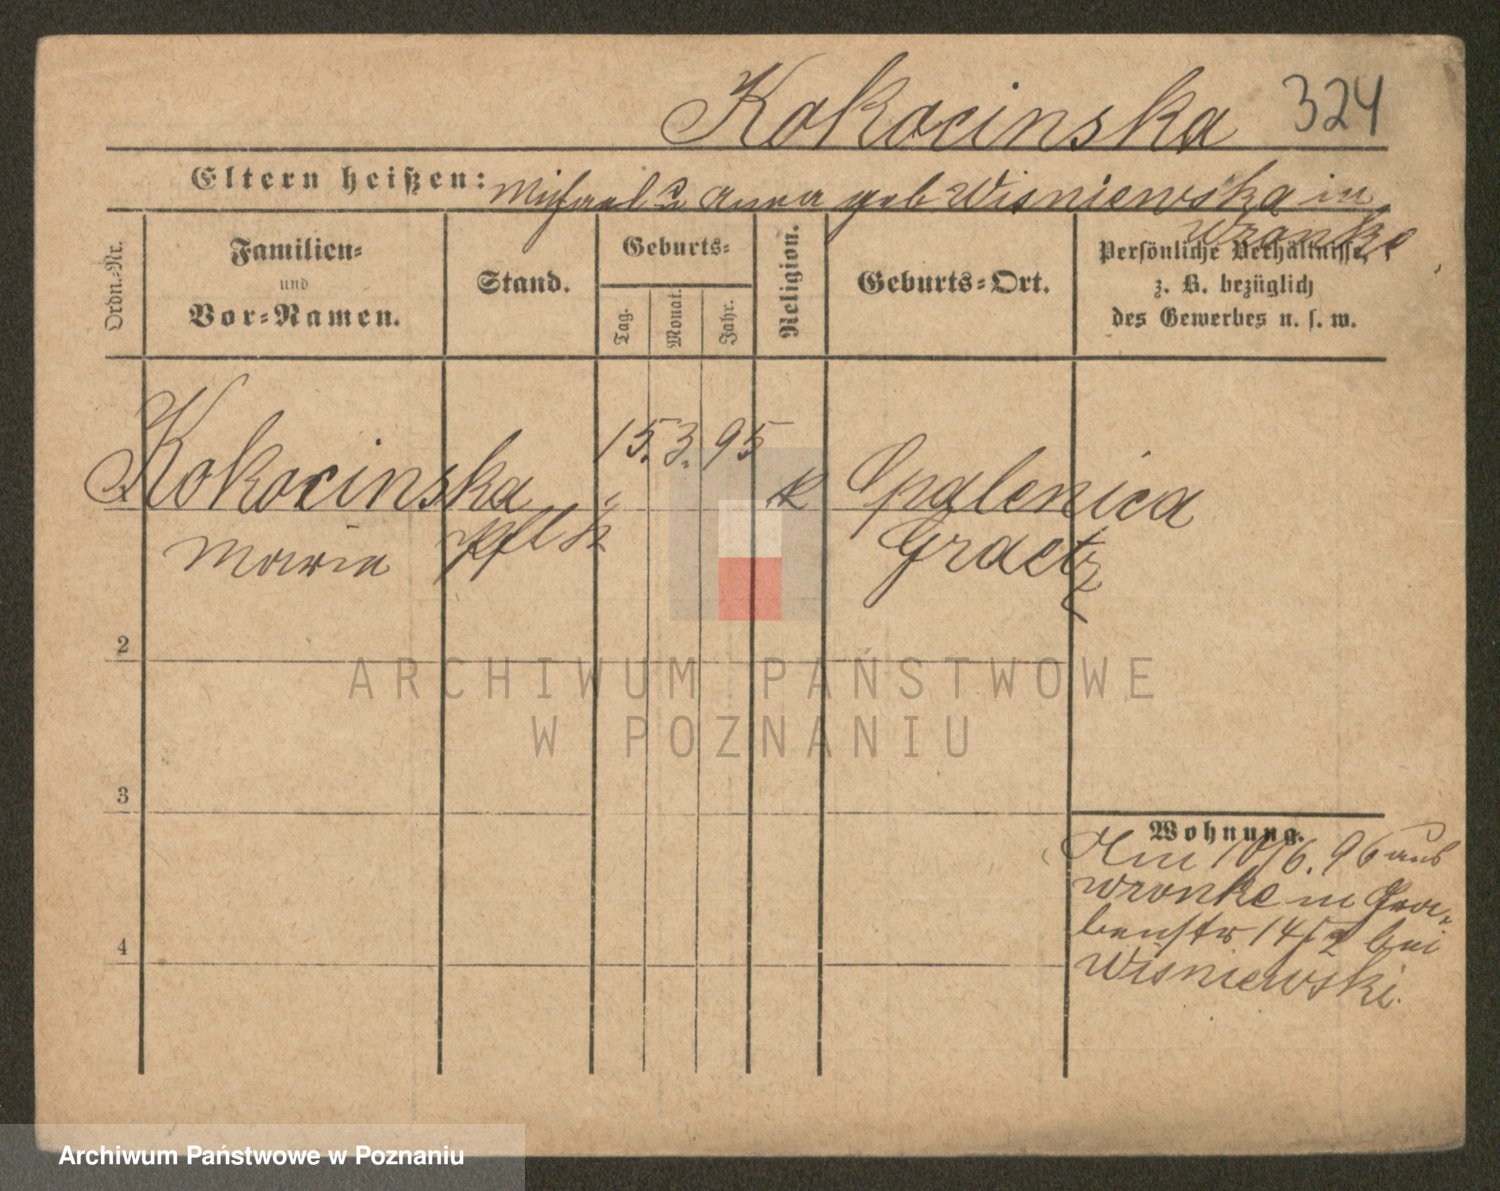 Kokocinska 324
Eltern heißen: Michael u Anna geb Wisniewska in
Wronke
Ordn.-Nr.
Familien-
und
Vor-Namen.
Stand.
Geburts-
Tag.
Monat.
Jahr.
Religion.
Geburts-Ort.
Persönliche Verhältnisse,
z. B. bezüglich
des Gewerbes u. s. w.
Kokocinska
Marie
15. 3. 95
k
Opalenica
Graetz
2
3
4
Wohnung.
Am 10/6. 96 aus
Wronke in Gra-
benstr 14/2 bei
Wisniewski.
ARCHIWUM PAŃSTWOWE
W POZNANIU
Archiwum Państwowe w Poznaniu